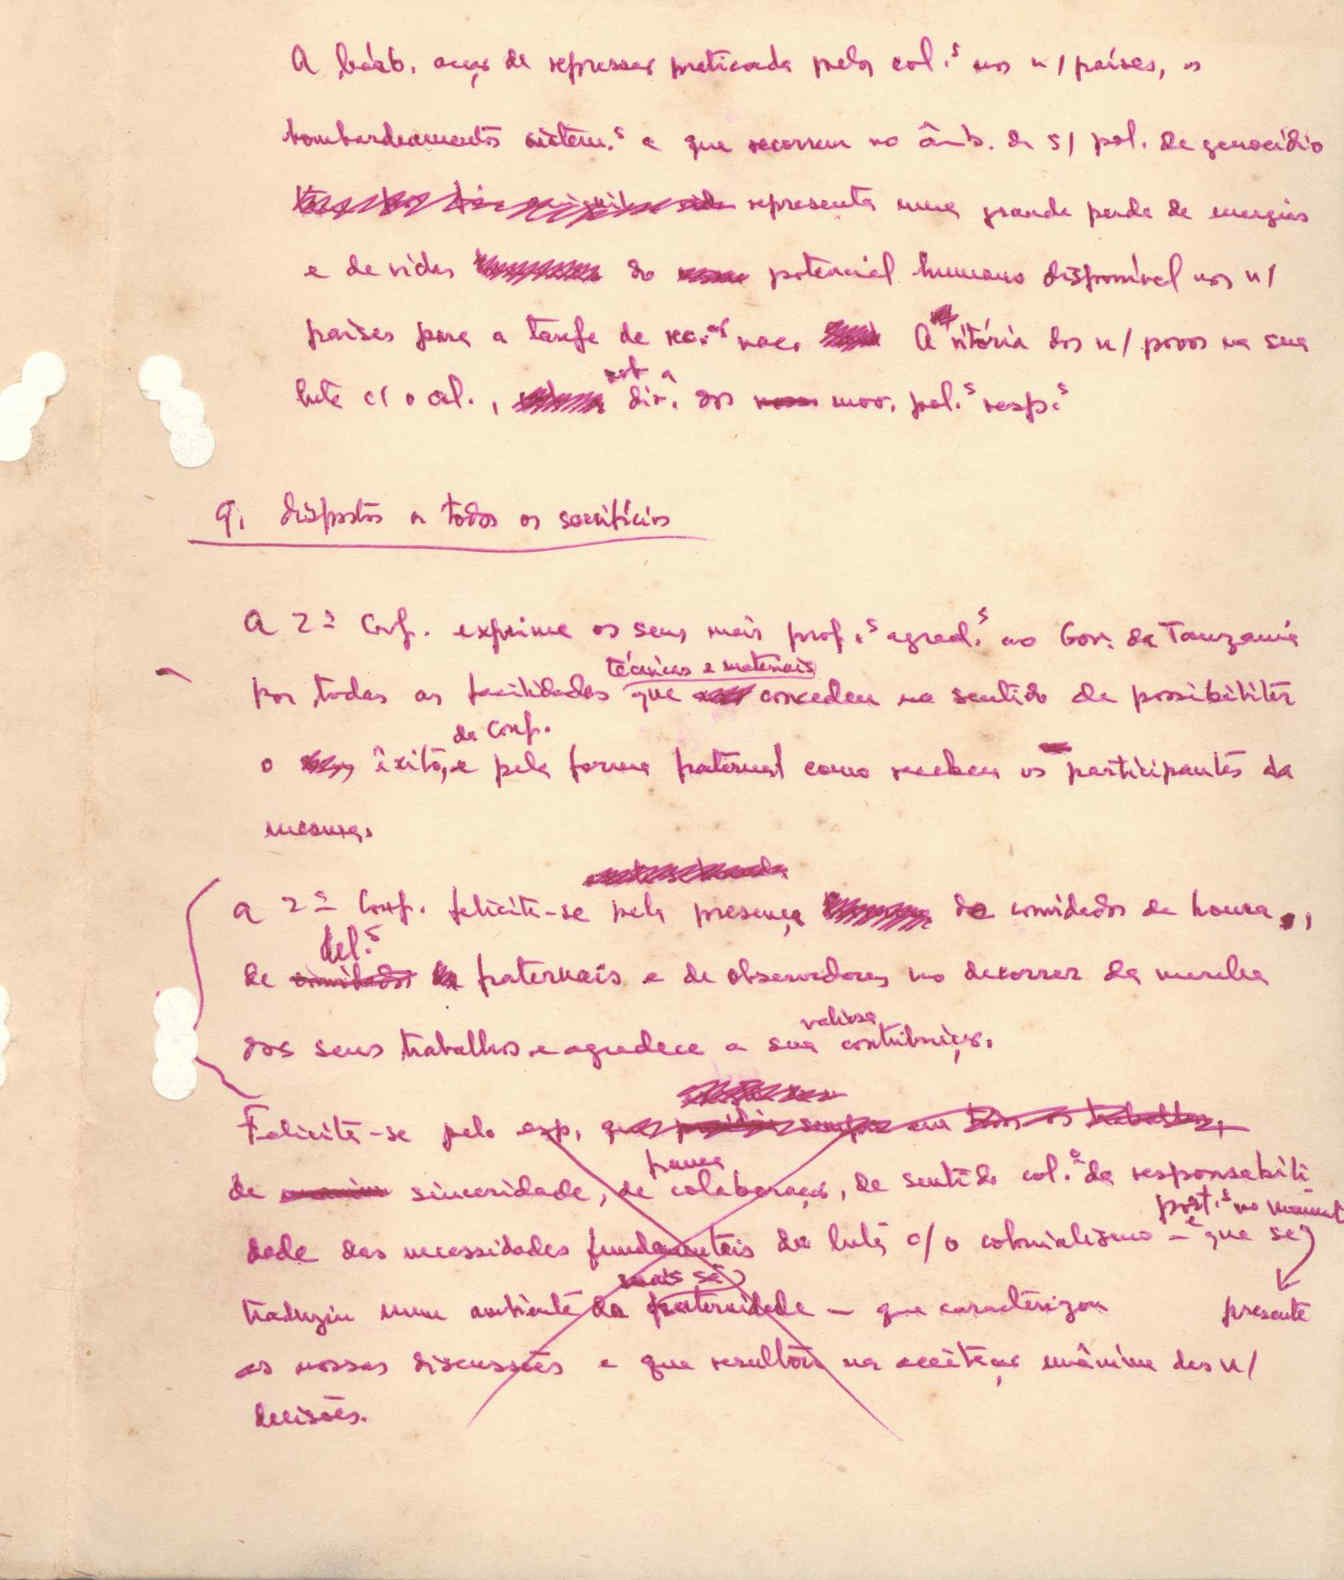 A bárb. acção de repressão praticada pelos col.s nos n/ países, os
bombardeamentos sistem.s a que recorrem no âmb. da s/ pol. de genocídio
representa uma grande perda de energias
e de vidas do potencial humano disponível nos n/
países para a tarefa de rec.ão nac. A vitória dos n/ povos na sua
sob a
luta c/ o col., dir. dos mov. pol.s resp.s
q. dispostos a todos os sacrifícios
A 2ª Conf. exprime os seus mais prof.s agrad.s ao Gov. da Tanzania
técnicas e materiais
por todas as facilidades que concedeu no sentido de possibilitar
da Conf.
o êxito, e pela forma fraternal como recebeu os participantes da
mesma.
A 2ª Conf. felicita-se pela presença de convidados de honra,
del.s
de fraternais e de observadores no decorrer da marcha
valiosa
dos seus trabalhos e agradece a sua contribuição.
Felicita-se pelo esp. que sempre em todos os trabalhos,
franca
de sinceridade, de colaboração, de sentido col.o da responsabili
dade das necessidades fundamentais da luta c/ o colonialismo - e que se
presente
mais se
traduziu num ambiente de fraternidade - que caracterizou
as nossas discussões e que resultou na aceitação unânime das n/
decisões.